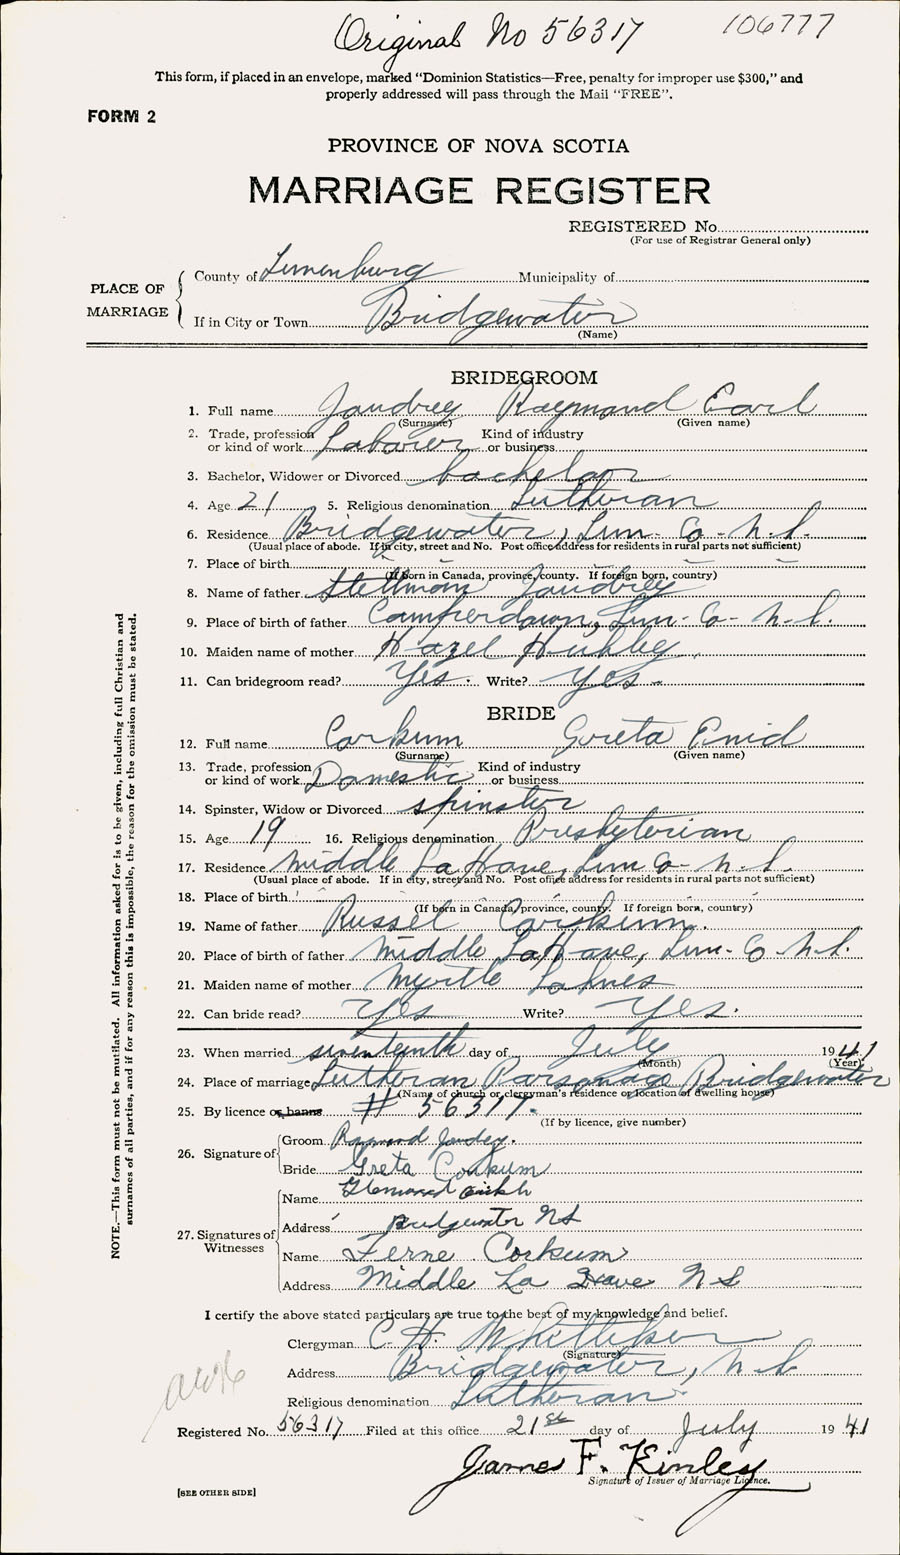 Original No 56317 106777
This form, if placed in an envelope, marked "Dominion Statistics—Free, penalty for improper use $300," and
properly addressed will pass through the Mail "FREE".
FORM 2
PROVINCE OF NOVA SCOTIA
MARRIAGE REGISTER
REGISTERED No.
(For use of Registrar General only)
PLACE OF MARRIAGE
County of Lunenburg Municipality of
If in City or Town Bridgewater
(Name)
BRIDEGROOM
1. Full name Jaudrey Raymond Earl
(Surname) (Given name)
2. Trade, profession Kind of industry
or kind of work Laborer or business
3. Bachelor, Widower or Divorced bachelor
4. Age 21 5. Religious denomination Lutheran
6. Residence Bridgewater, Lun. Co. N.S.
(Usual place of abode. If in city, street and No. Post office address for residents in rural parts not sufficient)
7. Place of birth
(If born in Canada, province, county. If foreign born, country)
8. Name of father Stellman Jaudrey
9. Place of birth of father Camperdown, Lun. Co. N.S.
10. Maiden name of mother Hazel
11. Can bridegroom read? Yes. Write? Yes.
BRIDE
12. Full name Corkum Greta Enid
(Surname) (Given name)
13. Trade, profession Kind of industry
or kind of work Domestic or business
14. Spinster, Widow or Divorced spinster
15. Age 19 16. Religious denomination Presbyterian
17. Residence Middle LaHave, Lun Co. N.S.
(Usual place of abode. If in city, street and No. Post office address for residents in rural parts not sufficient)
18. Place of birth
(If born in Canada, province, county. If foreign born, country)
19. Name of father Russel Corkum.
20. Place of birth of father Middle LaHave, Lun. Co N.S.
21. Maiden name of mother Myrtle
22. Can bride read? Yes Write? Yes.
23. When married seventeenth day of July 1941
(Month) (Year)
24. Place of marriage Lutheran Parsonage Bridgewater
(Name of church or clergyman's residence or location of dwelling house)
25. By licence or banns # 56317.
(If by licence, give number)
26. Signature of
Groom Raymond Jaudrey.
Bride Greta Corkum
27. Signatures of Witnesses
Name
Address Bridgewater NS
Name Ferne Corkum
Address Middle La Have N S
I certify the above stated particulars are true to the best of my knowledge and belief.
Clergyman C. H. Whitteker
(Signature)
Address Bridgewater, N.S.
Religious denomination Lutheran.
Registered No. 56317 Filed at this office 21st day of July 1941
James F. Kinley
Signature of Issuer of Marriage Licence.
[SEE OTHER SIDE]
NOTE.—This form must not be mutilated. All information asked for is to be given, including full Christian and
surnames of all parties, and if for any reason this is impossible, the reason for the omission must be stated.